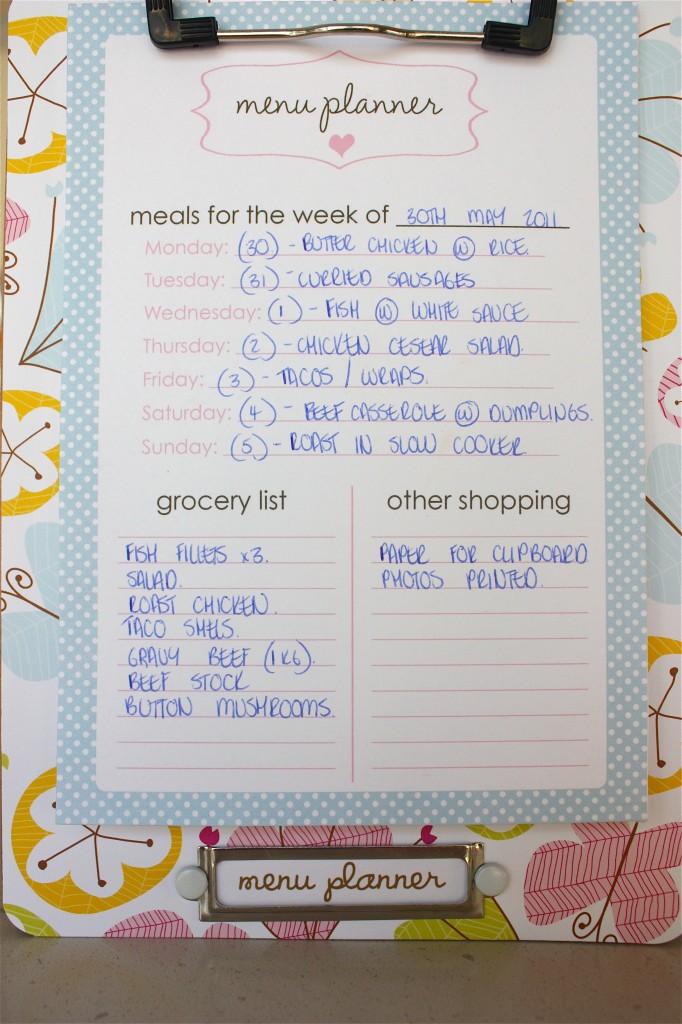 menu planner
meals for the week of 30TH MAY 2011
Monday: (30) - BUTTER CHICKEN @ RICE.
Tuesday: (31) - CURRIED SAUSAGES
Wednesday: (1) - FISH ⓦ WHITE SAUCE
Thursday: (2) - CHICKEN CESEAR SALAD.
Friday: (3) - TACOS / WRAPS.
Saturday: (4) - BEEF CASSEROLE ⓦ DUMPLINGS.
Sunday: (5) - ROAST IN SLOW COOKER
grocery list
FISH FILLETS x3.
SALAD.
ROAST CHICKEN.
TACO SHELLS.
GRAVY BEEF (1KG).
BEEF STOCK
BUTTON MUSHROOMS.
other shopping
PAPER FOR CLIPBOARD
PHOTOS PRINTED.
menu planner